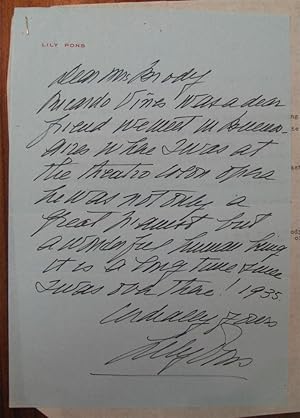 LILY PONS
Dear Mr. Brody
Ricardo Viñes was a dear
friend we met in Buenos-
Aires when I was at
the theatro colon opera
he was not only a
great pianist but
a wonderful human being
it is a long time since
I was over there! 1935
Cordially yours
Lily Pons